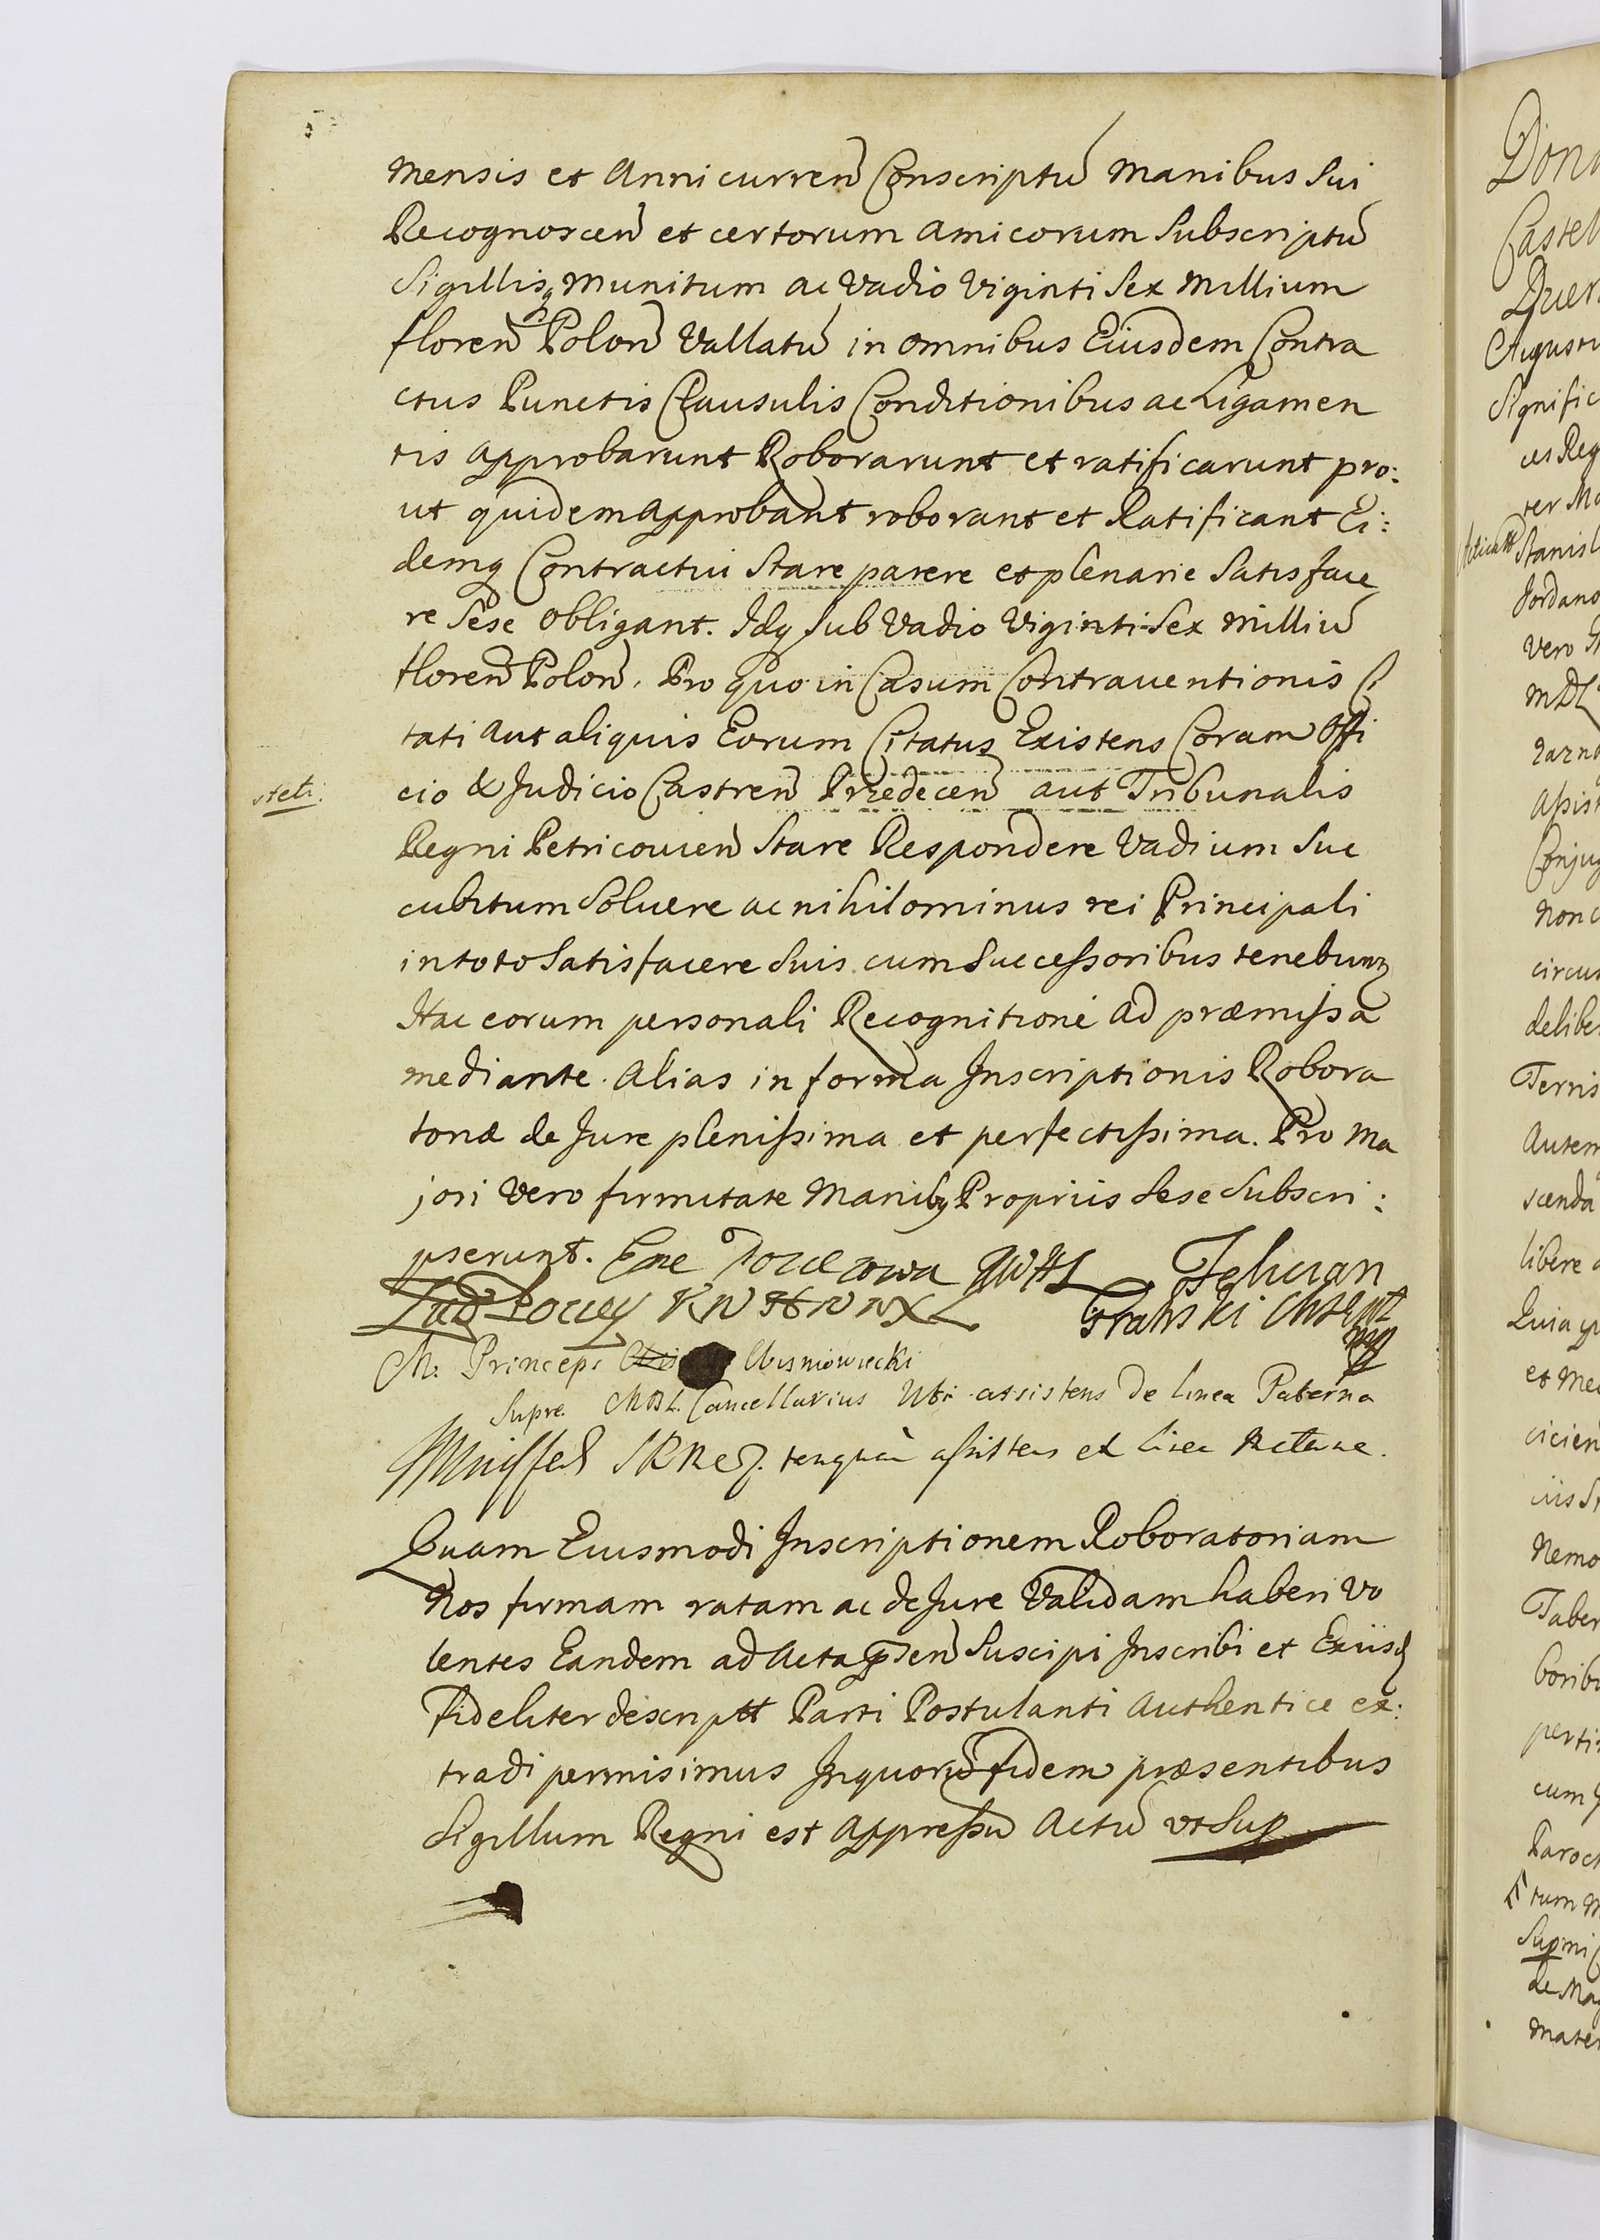 mensis et Anni curren Conscriptu manibus sui
Recognoscen et certorum Amicorum Subscriptu
Sigillisq munitum ac Vadio Viginti Sex Millium
floren Polon Vallatu in omnibus Eiusdem Contra
ctus Punctis Clausulis Conditionibus ac Ligamen
tis approbarunt Roborarunt et ratificarunt pro:
ut quidem approbant roborant et Ratificant Ei:
demq Contractui Stare parere et plenarie Satisface
re Sese obligant. Idq sub Vadio Viginti Sex Milliu
floren Polon. Pro quo in Casum Contrauentionis Ci
tati aut aliquis Eorum Citatus Existens Coram Offi
steti.
cio & Judicio Castren Przedecen aut Tribunalis
Regni Petricouien Stare Respondere Vadium Suc
cubitum Soluere ac nihilominus rei Principali
in toto Satisfacere Suis cum Successoribus tenebunt
Hac eorum personali Recognitione ad præmissa
mediante. Alias in forma Inscriptionis Robora
toriæ de Jure plenissima et perfectissima. Pro Ma
jori Vero firmitate Manibq Propriis Sese Subscri:
pserunt. Felician
Lud Pociey
M. Princeps Wisniowiecki
Supre. MDL. Cancellarius Uti assistens De linea Paterna
Quam Eiusmodi Inscriptionem Roboratoriam
Nos firmam ratam ac de Jure Validam haberi Vo
lentes Eandem ad Acta Præsen Suscipi Inscribi et Exiisd
Fideliter descriptt Parti Postulanti Authentice ex:
tradi permisimus In quoru fidem præsentibus
Sigillum Regni est appressu Actu ut Sup
Dona
Castel
Quer
August
Signific
Stanisl
Jordano
Vero
MDL
Assist
Conjug
Non
circu
delibe
Terris
Autem
scenda
libere
Quia
et Me
Nemo
Taber
pertis
cum
Paroch
tum
Supmi
de Mag
Mater